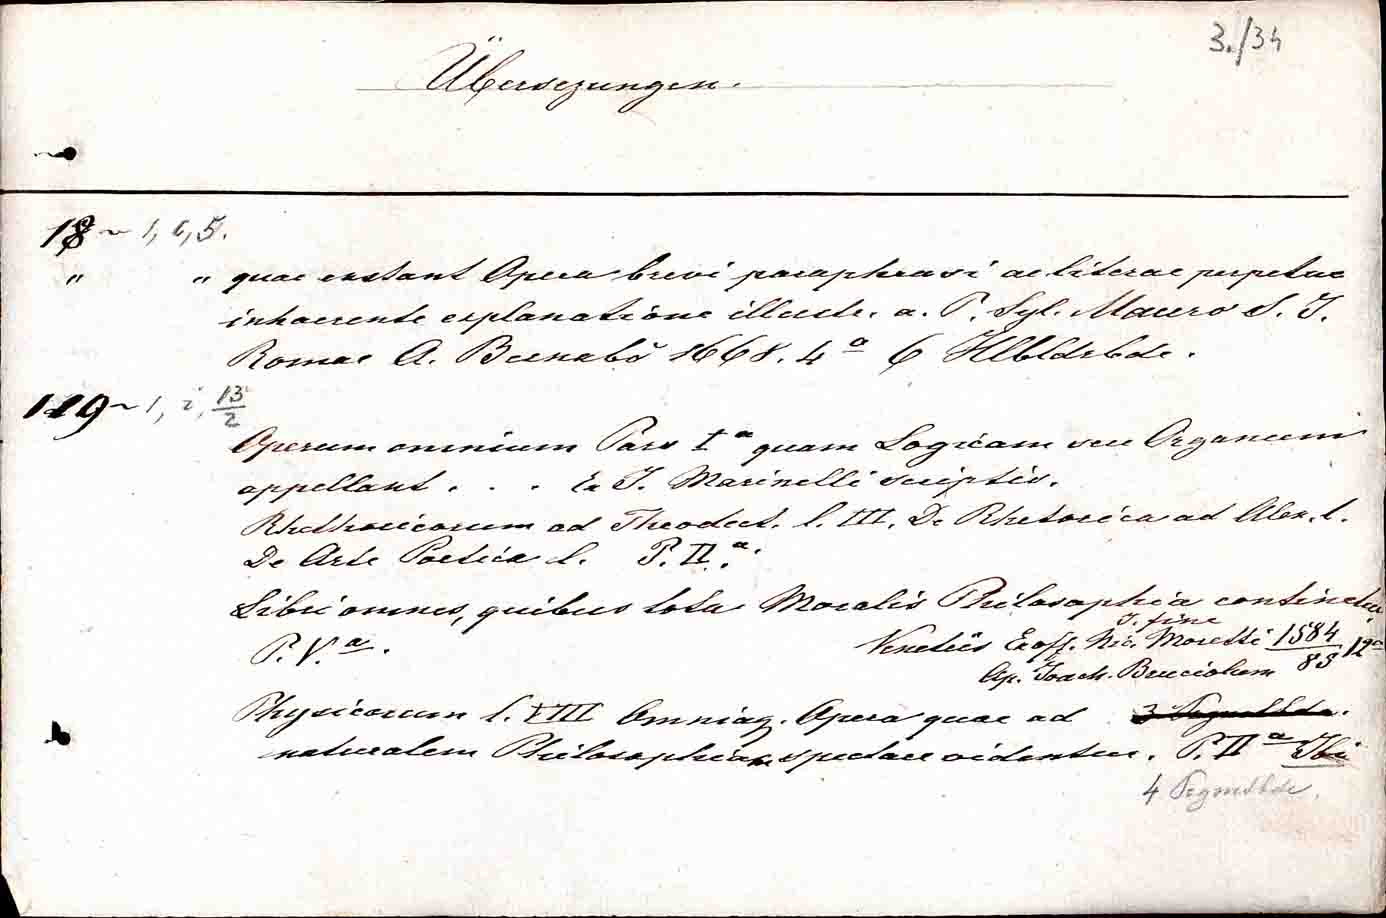 3./34
Übersezungen.
18 ~ 1, 1, 5.
" " quae extant Opera brevi paraphrasi ac literae perpetuae
inhaerente explanatione illustr. a. P. Syl. Mauro S. J.
Romae A. Bernabò 1668. 4a 6 Hlbldrbde.
119 ~ 1, 2, 13/2
Operum omnium Pars Ia quam Logicam seu Organum
appellant . . . Ex J. Marinelli scriptis.
Rhethoricorum ad Theodect. l. III. De Rhetorica ad Alex. l.
De Arte Poetica l. P. II.a.
Libri omnes, quibus tota Moralis Philosophia continetur
i. fine
P. V.a. Venetiis Ex off. Nic. Moretti 1584 12o
Ap. Joach. Bruciolum 85
Physicorum l. VIII Omniaq. Opera quae ad 3 Pegmtbde.
naturalem Philosophiam spectare videntur. P. IIa Ibi
4 Pegmtbde.